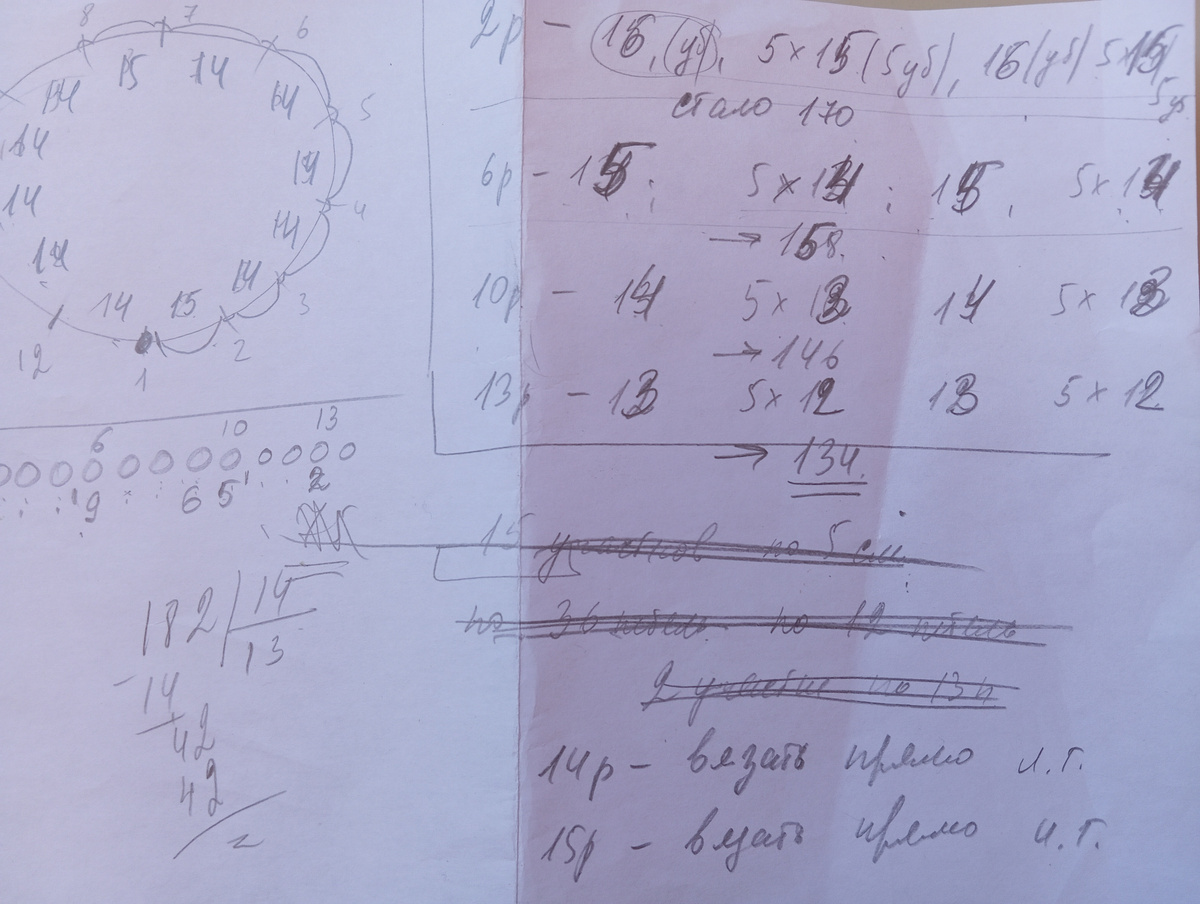 8 7 6
15 14
14 14
5
14 14
4
14 14
14
14 15 14
3
12 1 2
6 10 13
9 6 5 2
182 | 14
13
- 14
42
42
=
2р - 16, (уб), 5 x 15 (5уб), 16 (уб) 5x15
5уб
стало 170
6р - 15; 5 x 14; 15, 5 x 14
→ 158.
10р - 14 5 x 13 14 5 x 13
→ 146
13р - 13 5 x 12 13 5 x 12
→ 134.
15 участков по 5 см.
по 36 петель по 12 петель
2 участка по 13 п
14р - вязать прямо и.т.
15р - вязать прямо и.т.